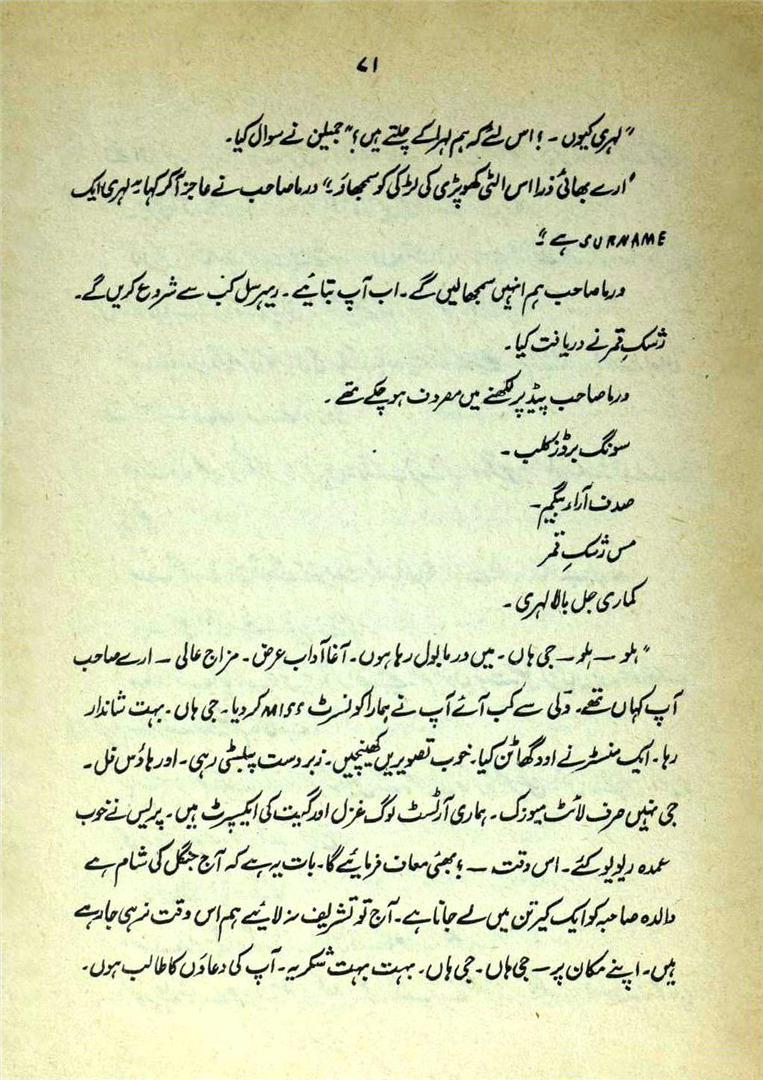 ۷۱
"لہری کیوں۔ ؟ اس لئے کہ ہم لہرا کے چلتے ہیں؟" جمیلن نے سوال کیا۔
"ارے بھائی ذرا اس الٹی کھوپڑی کی لڑکی کو سمجھاؤ۔" ورما صاحب نے عاجز آ کر کہا یہ لہری ایک
SURNAME ہے"
ورما صاحب ہم انہیں سمجھا لیں گے۔ اب آپ بتائیے۔ ریہرسل کب سے شروع کریں گے۔
رشکِ قمر نے دریافت کیا۔
ورما صاحب پیڈ پر لکھنے میں مصروف ہو چکے تھے۔
سونگ برڈز کلب۔
صدف آراء بیگم۔
مس رشکِ قمر
کماری جل بالا لہری۔
"ہلو — ہلو — جی ہاں۔ میں ورما بول رہا ہوں۔ آغا آداب عرض۔ مزاج عالی — ارے صاحب
آپ کہاں تھے۔ دلّی سے کب آئے آپ نے ہمارا کونسرٹ MISS کر دیا۔ جی ہاں۔ بہت شاندار
رہا۔ ایک منسٹر نے اودگھاٹن کیا۔ خوب تصویریں کھینچیں۔ زبردست پبلسٹی رہی۔ اور ہاؤس فل۔
جی نہیں صرف لائٹ میوزک۔ ہماری آرٹسٹ لوگ غزل اور گیت کی ایکسپرٹ ہیں۔ پریس نے خوب
عمدہ ریویو کئے۔ اس وقت — ؟ بھئی معاف فرمائیے گا۔ بات یہ ہے کہ آج جنگل کی شام ہے
والدہ صاحبہ کو ایک کیرتن میں لے جانا ہے۔ آج تو تشریف نہ لائیے ہم اس وقت نہی جا رہے
ہیں۔ اپنے مکان پر — جی ہاں۔ جی ہاں۔ بہت بہت شکریہ۔ آپ کی دعاؤں کا طالب ہوں۔